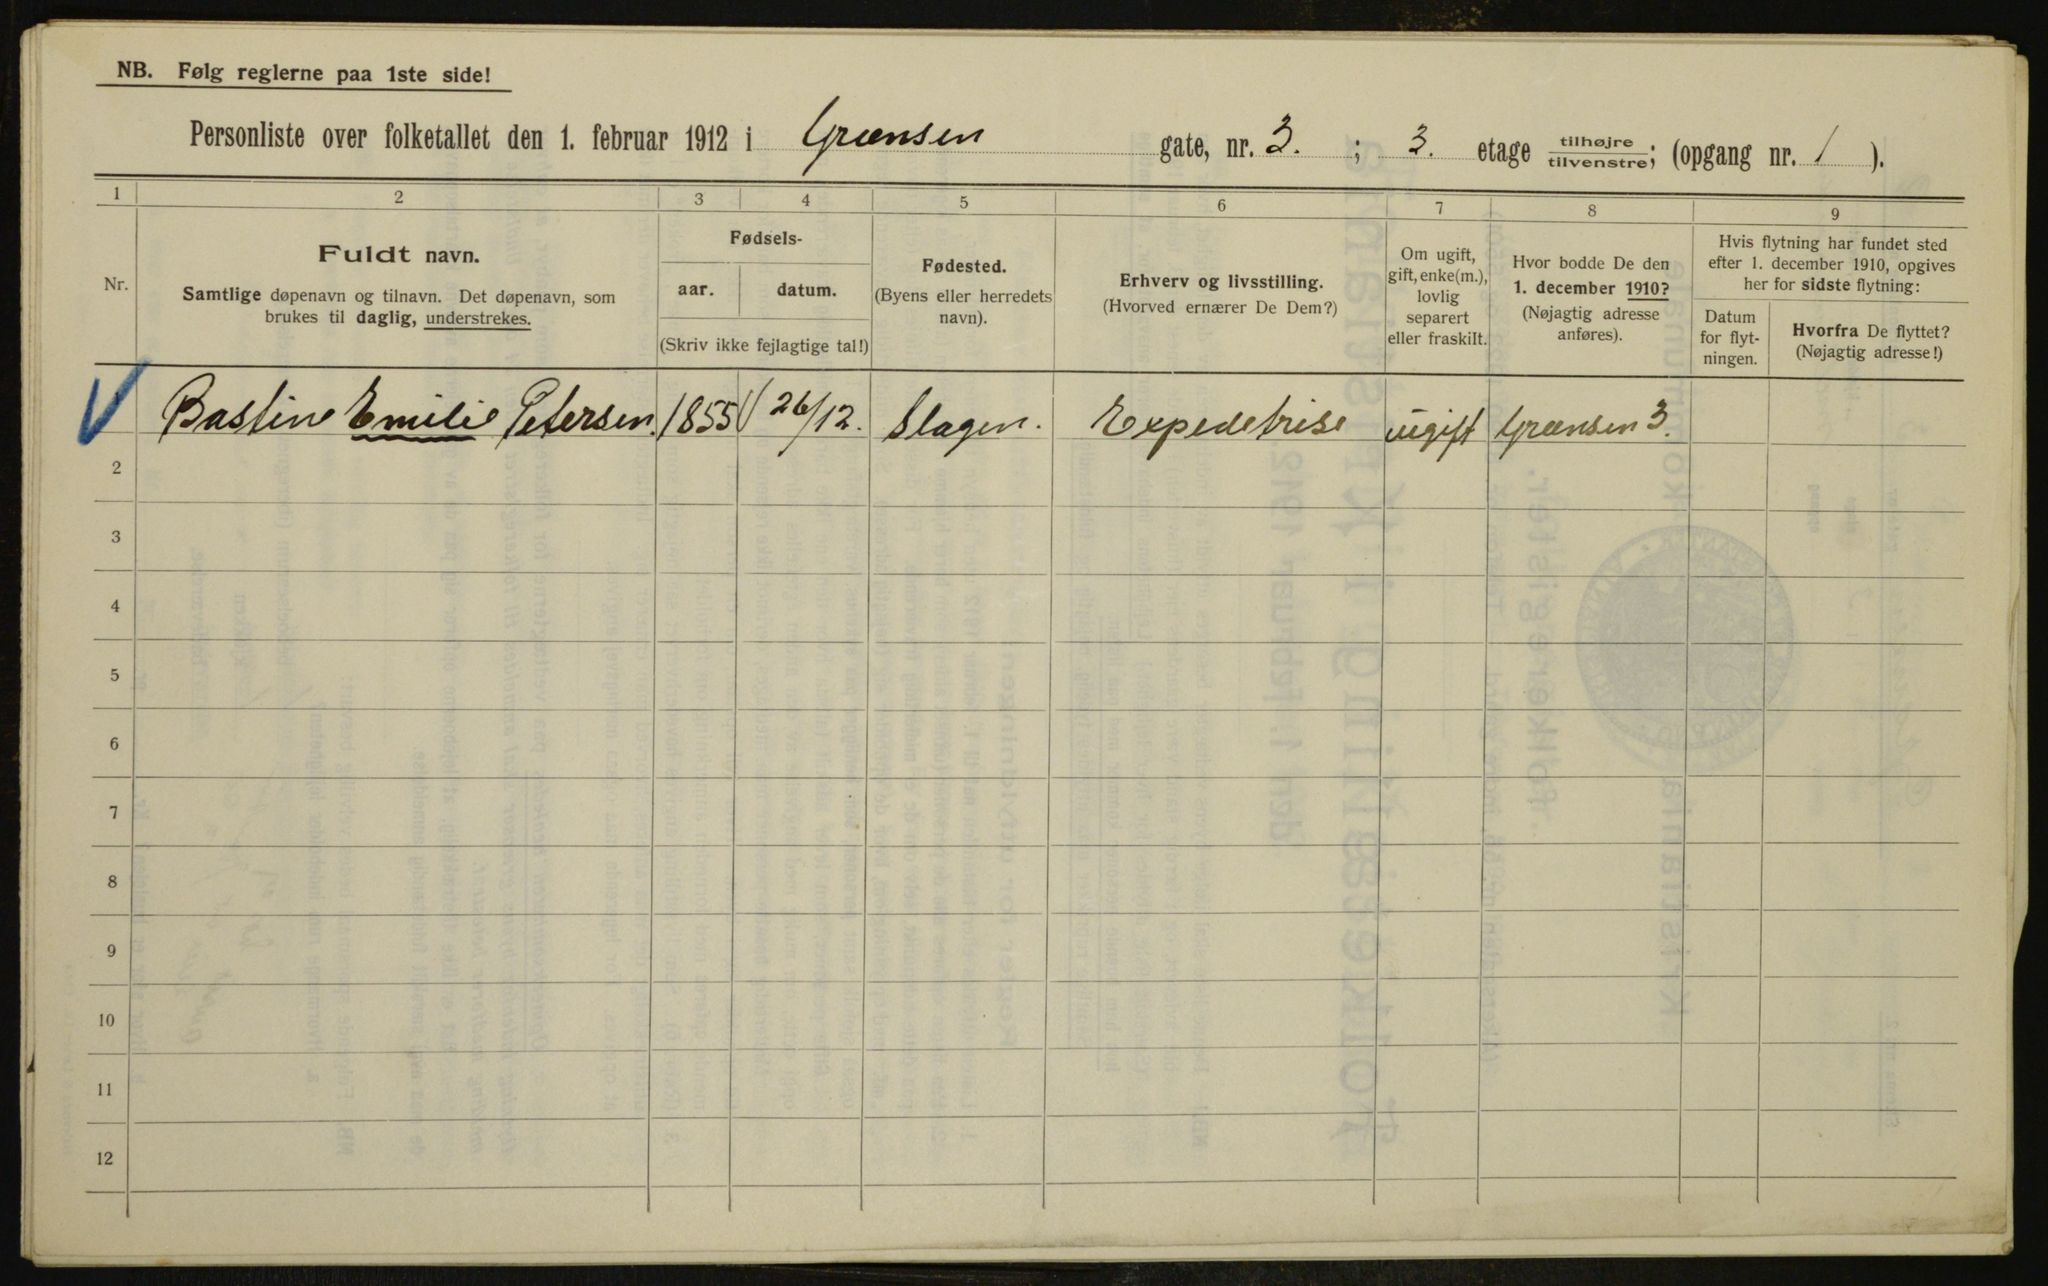 NB. Følg reglerne paa 1ste side!
Personliste over folketallet den 1. februar 1912 i Grænsen gate, nr. 3. ; 3. etage tilhøjre/tilvenstre; (opgang nr. 1 ).
1 2 3 4 5 6 7 8 9
Nr.
Fuldt navn.
Samtlige døpenavn og tilnavn. Det døpenavn, som
brukes til daglig, understrekes.
Fødsels-
aar. datum.
(Skriv ikke fejlagtige tal!)
Fødested.
(Byens eller herredets
navn).
Erhverv og livsstilling.
(Hvorved ernærer De Dem?)
Om ugift,
gift, enke(m.),
lovlig
separert
eller fraskilt.
Hvor bodde De den
1. december 1910?
(Nøjagtig adresse
anføres).
Hvis flytning har fundet sted
efter 1. december 1910, opgives
her for sidste flytning:
Datum
for flyt-
ningen.
Hvorfra De flyttet?
(Nøjagtig adresse!)
Bastine Emilie Petersen. 1855 26/12. Slagen. Expedetrise ugift Grænsen 3.
2
3
4
5
6
7
8
9
10
11
12